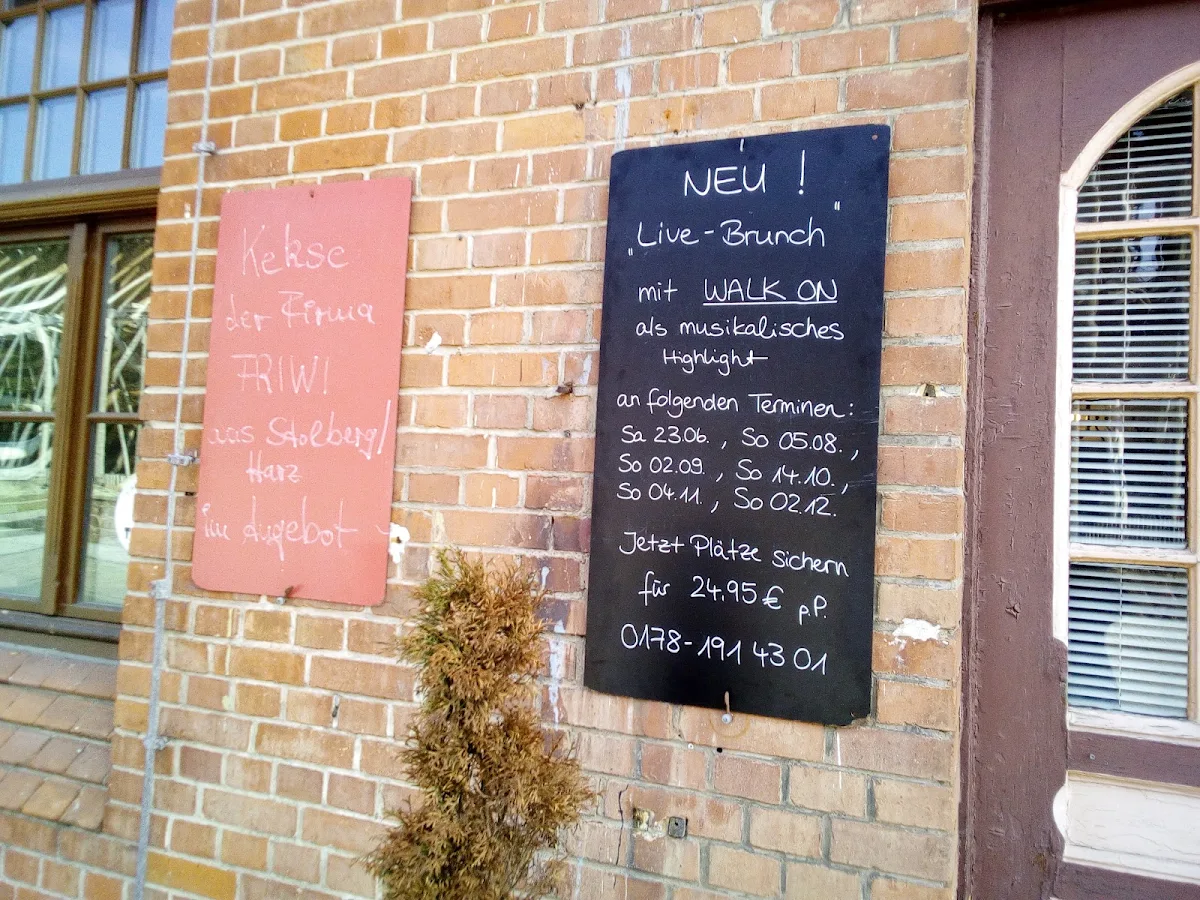 Kekse
der Firma
FRIWI
aus Stolberg/
Harz
im Angebot
NEU !
„Live-Brunch"
mit WALK ON
als musikalisches
Highlight
an folgenden Terminen:
Sa 23.06. , So 05.08. ,
So 02.09. , So 14.10. ,
So 04.11. , So 02.12.
Jetzt Plätze sichern
für 24.95 € p.P.
0178-191 43 01